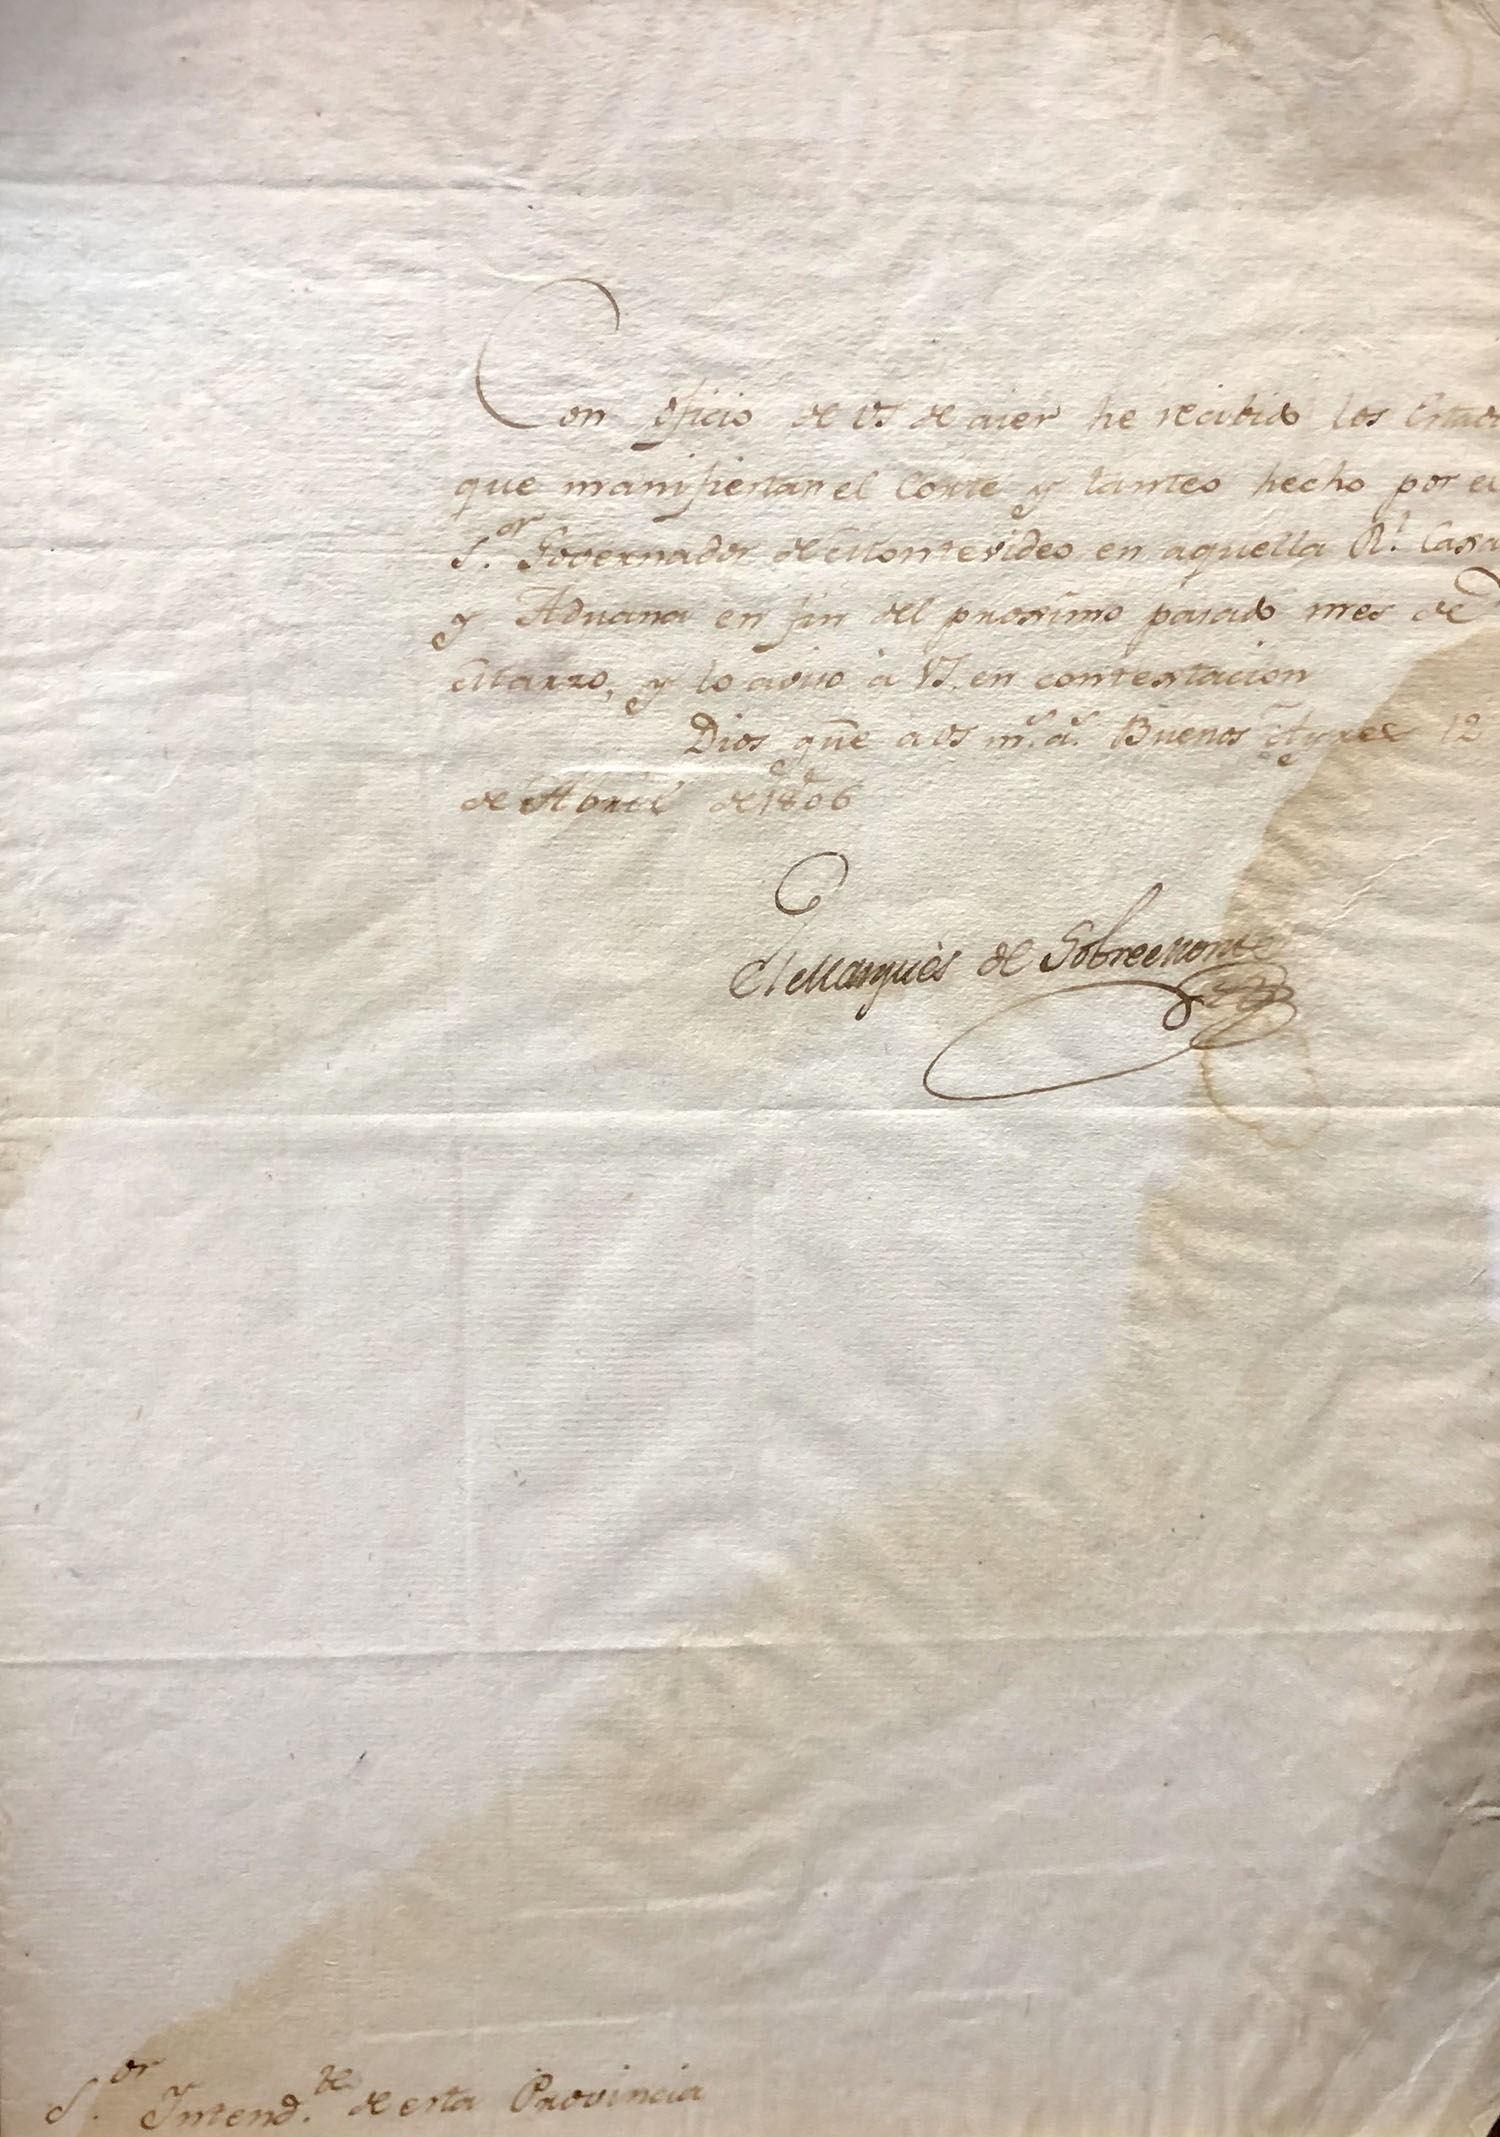 Con oficio de VS de aier he recibido los Estados
que manifiestan el Corte y tanteo hecho por el
S.or Governador de Montevideo en aquella Rl. Caxa
y Aduana en fin del proximo pasado mes de
Marzo, y lo aviso à VS. en contestacion
Dios gue a VS ms. as. Buenos Ayres 12
de Abril de 1806
El Marquès de SobreMonte
S.or Yntend.te de esta Provincia